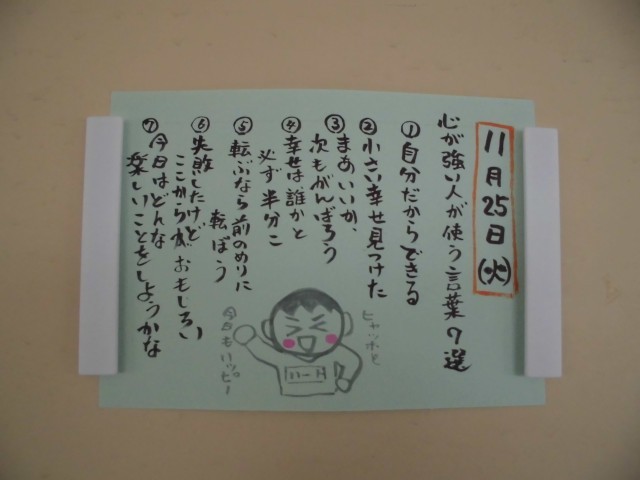 11月25日(火)
心が強い人が使う言葉7選
①自分だからできる
②小さい幸せ見つけた
③まあいいか、
次もがんばろう
④幸せは誰かと
必ず半分こ
⑤転ぶなら前のめりに
転ぼう
⑥失敗したけど
ここからが、おもしろい
⑦今日はどんな
楽しいことをしようかな
ヒャッホー
今日もハッピー
ハート